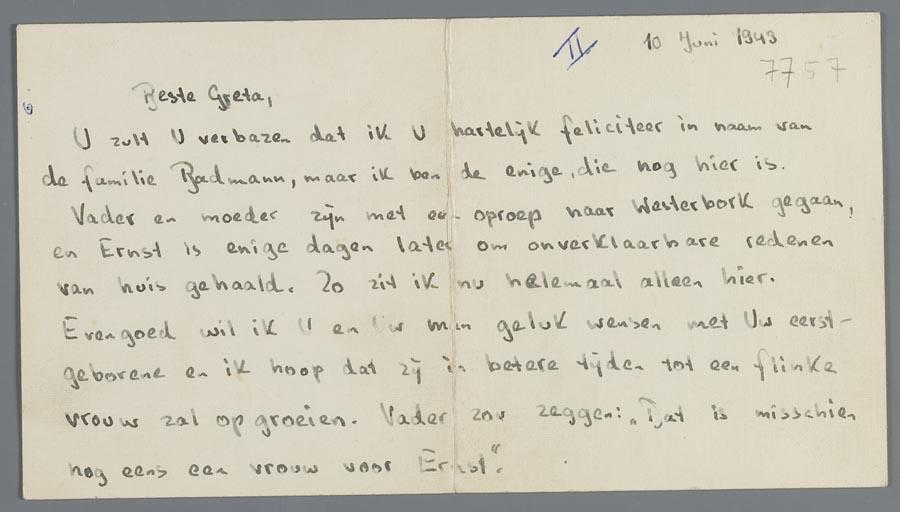 II
10 Juni 1943
7757
Beste Greta,
U zult U verbazen dat ik U hartelijk feliciteer in naam van
de familie Badmann, maar ik ben de enige, die nog hier is.
Vader en moeder zijn met een oproep naar Westerbork gegaan,
en Ernst is enige dagen later om onverklaarbare redenen
van huis gehaald. Zo zit ik nu helemaal alleen hier.
Evengoed wil ik U en Uw man geluk wensen met Uw eerst-
geborene en ik hoop dat zij in betere tijden tot een flinke
vrouw zal opgroeien. Vader zou zeggen: „Dat is misschien
nog eens een vrouw voor Ernst“.